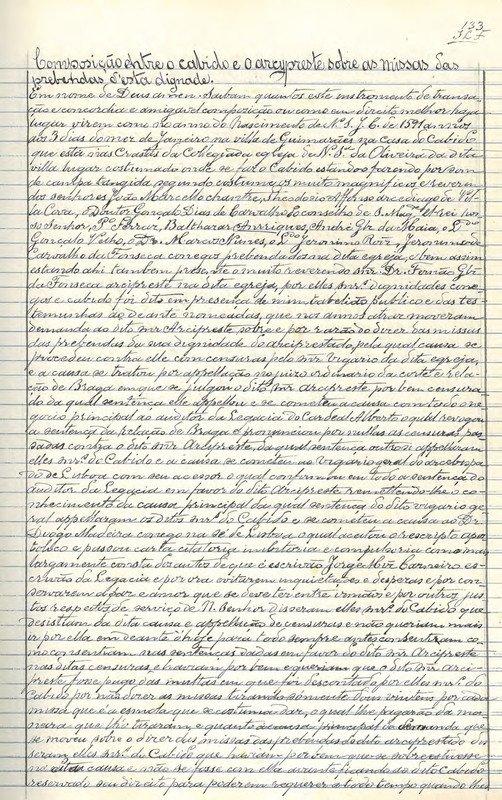 133
Composição entre o cabido e o arcypreste sobre as missas das
prebendas d'esta dignade.
Em nome de Deus amen. Saibam quantos este instromento de transa-
ção e concordia e amigavel composição ou como em direito melhor haja
lugar virem como no anno do Nascimento de N. S. J. C. de 1591 annos
aos 3 dias do mez de Janeiro na villa de Guimarães na Casa do Cabido
que esta nas Crastas da Collegiada egreja de N. Sª da Oliveira da dita
villa lugar costumado onde se faz o Cabido estando fazendo por som
de campa tangida segundo costume os muito magnificos e reveren-
dos senhores João Marcello chantre, Theodosio Affonso arcediago de Vil-
la Cova, o Doutor Gonçalo Dias de Carvalho do conselho de S. Magde el-rei nos-
so Senhor, Pº Ferraz, Balthazar Anrriques, André Glz da Maia, o Ldo
Gonçalo Velho, o Dr. Marcos Nunes, o Ldo Jeronimo Roiz, Jeronimo de
Carvalho da Fonseca conegos prebendados na dita egreja, e bem assim
estando ahi tambem presente o muito reverendo snr Dr. Fernão Glz
da Fonseca arcipreste na dita egreja, por elles snrs dignidades cone-
gos e cabido foi dito em presença de mim tabelião publico e das tes-
temunhas ao deante nomeadas, que nos annos atraz moveram
demanda ao dito snr Arcipreste sobre e por razão do dizer das missas
das prebendas da sua dignidade do arciprestado, pela qual causa se
procedeu contra elle com censuras pelo snr Vigario da dita egreja,
e a causa se tratou por appellação no juizo ordinario da corte e rela-
ção de Braga em que se julgou o dito snr arcipreste por bem censura-
do da qual sentença elle appellou e se cometeu a causa com todo o ne-
gocio principal ao auditor da Legacia do Cardeal Alberto o qual revogou
a sentença da relação de Braga e pronunciou por nullas as censuras pas-
sadas contra o dito snr Arcypreste, da qual sentença outrosi appellaram
elles snrs do Cabido e a causa se cometeu ao vigario geral do arcebispa-
do de Lisboa com seu acessor o qual confirmou em todo a sentença do
auditor da Legacia em favor do dito Arcipreste remettendo-lhe o co-
nhecimento da causa principal da qual sentença do dito vigario ge-
ral appellaram os ditos snrs do Cabido e se cometeu a causa ao Dr
Diogo Madeira conego na sé de Lisboa o qual aceitou o rescripto apos-
tolico e passou carta citatoria inibitoria e compulsoria como mais
largamente consta dos autos de que é escrivão Jorge Miz Carneiro es-
crivão da Legacia e por ora evitarem inquietações e despezas e por con-
servarem a paz e amor que se deve ter entre irmãos e por outros jus-
tos respeitos de serviço de N. Senhor disseram elles snrs do Cabido que
desistiam da dita causa e appellação de censuras e não queriam mais
ir por ella em deante d'hoje para todo sempre antes consentiram co-
mo consentiam nas sentenças dadas em favor do dito snr Arcipreste
nas ditas censuras, e haviam por bem e queriam que o dito snr Arci-
preste fosse pago das multas em que foi descontado por elles snrs do
Cabido por não dizer as missas tirando somente dois vintens por cada
missa que é a esmola que se costuma dar, o qual lhe pagarão da ma-
neira que lho tiraram, e quanto a causa principal da demanda que
se moveu sobre o dizer das missas das prebendas do dito arciprestado dis-
seram elles snrs do Cabido que haviam por bem que se sobreestivesse
na dita causa e não se fosse com ella avante ficando ao dito Cabido
reservado seu direito para poderem requerer a todo tempo quando lhes